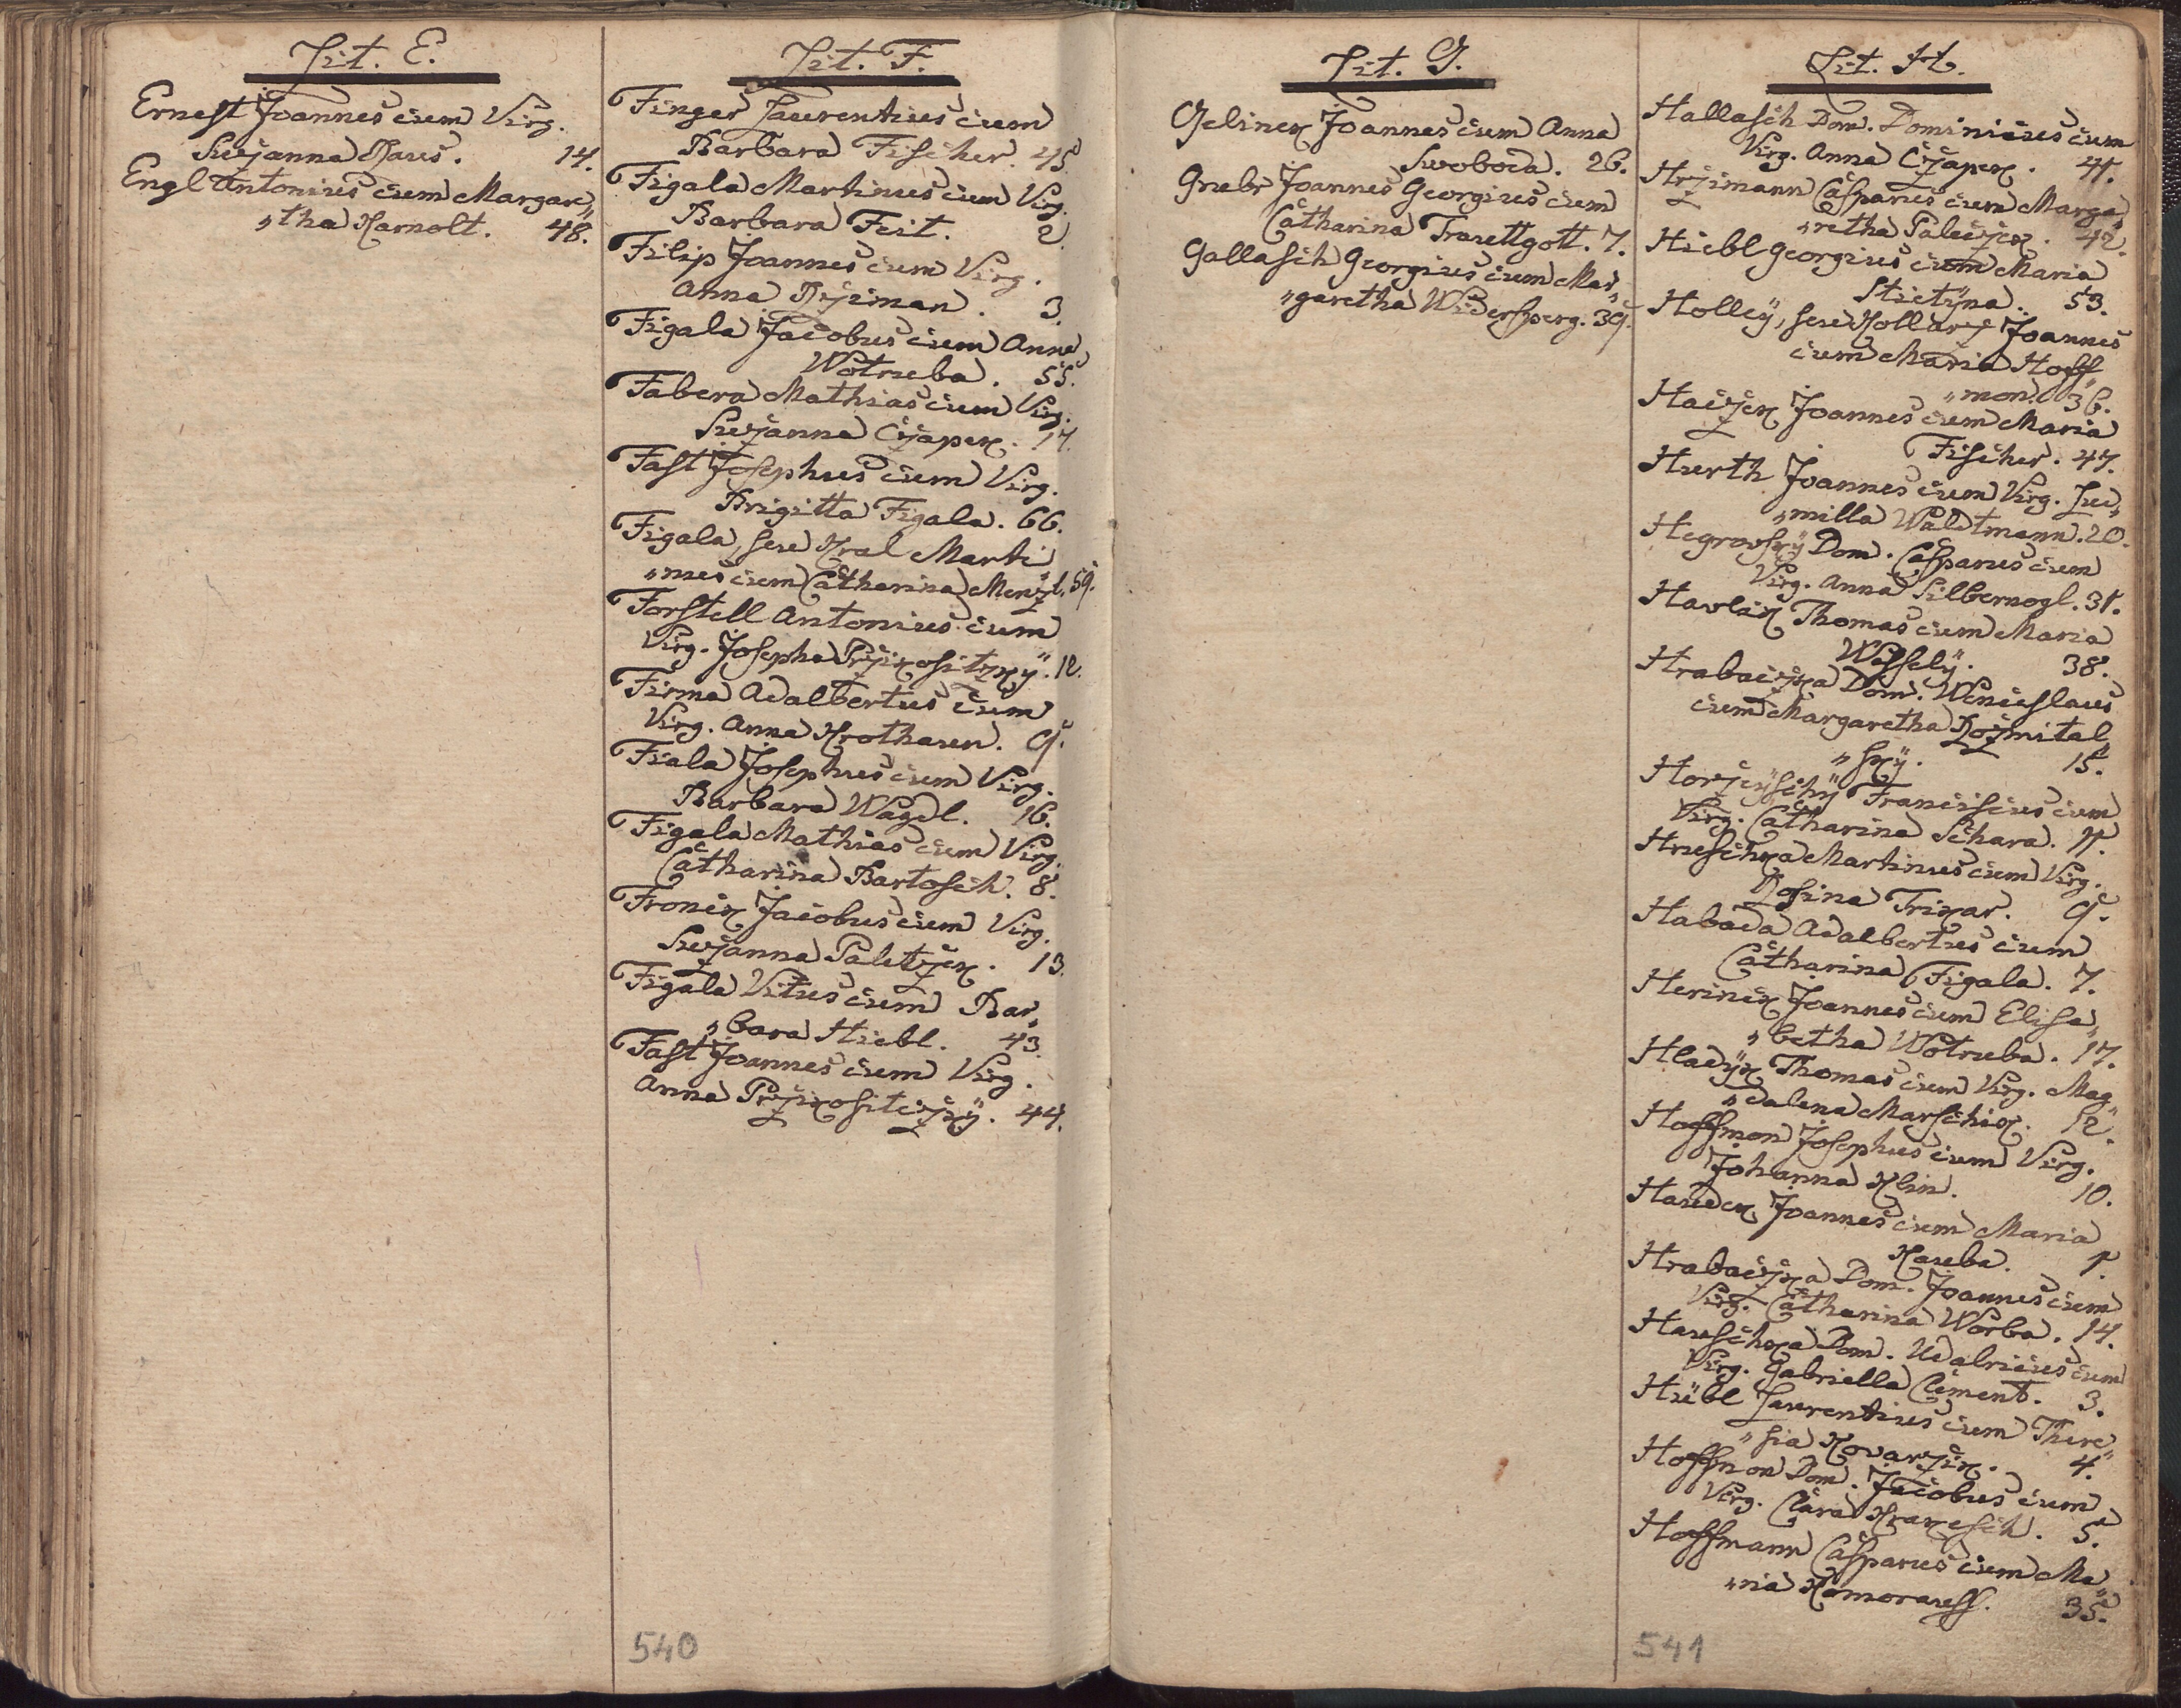 Lit. E.
Ernest Joannes cum Virg.
Suzanna Raus. 14.
Engl Antonius cum Margare„
„tha Karnolt. 48.
Lit. F.
Finger Laurentius cum
Barbara Fischer. 45.
Figala Martinus cum Virg.
Barbara Feit. 2.
Filip Joannes cum Virg.
Anna Rziman. 3.
Figala Jacobus cum Anna
Wotruba. 55.
Fabera Mathias cum Virg.
Suzanna Czapek. 17.
Fast Josephus cum Virg.
Brigitta Figala. 66.
Figala, seu Kral Marti
„nus cum Catharina Menzl. 59.
Forstell Antonius cum
Virg. Josepha Przikositzky. 12.
Firma Adalbertus cum
Virg. Anna Krothauen. 9.
Fiala Josephus cum Virg.
Barbara Wagdl. 16.
Figala Mathias cum Virg.
Catharina Bartosch. 8.
Fronek Jacobus cum Virg.
Suzanna Paletzek. 13.
Figala Vitus cum Bar„
„bara Hiebl. 43.
Fast Joannes cum Virg.
Anna Przikositczky. 44.
540
Lit. G.
Gelinek Joannes cum Anna
Swoboda. 26.
Grubr Joannes Georgius cum
Catharina Trauttgott. 7.
Gallasch Georgius cum Mar„
„garetha Widersperg. 39.
Lit. H.
Hallasch Dom. Dominicus cum
Virg. Anna Czapek. 41.
Hrzimann Casparus cum Marga„
„retha Paleczek. 42.
Hiebl Georgius cum Maria
Stietina. 53.
Holley, seu Kollarz Joannes
cum Maria Hoff„
„mon. 36.
Haczek Joannes cum Maria
Fischer. 47.
Hurth Joannes cum Virg. Lud„
„milla Waldtmann. 20.
Hegrovsky Dom. Casparus cum
Virg. Anna Silbernogl. 31.
Havlik Thomas cum Maria
Wessely. 38.
Hrabaczka Dom. Wenceslaus
cum Margaretha Rozmital„
„sky. 15.
Horzeyschy Franciscus cum
Virg. Catharina Schara. 11.
Hruschka Martinus cum Virg.
Rosina Trikar. 9.
Habada Adalbertus cum
Catharina Figala. 7.
Herinek Joannes cum Elisa„
„betha Wotruba. 17.
Hladyk Thomas cum Virg. Mag„
„dalena Marschik. 12.
Hoffmon Josephus cum Virg.
Johanna Klin. 10.
Haudek Joannes cum Maria
Kauba. 1.
Hrabaczka Dom. Joannes cum
Virg. Catharina Worba. 14.
Hauschka Dom. Udalricus cum
Virg. Gabriella Clement. 3.
Hübl Laurentius cum There„
„sia Kovarzik. 4.
Hoffmon Dom. Jacobus cum
Virg. Clara Krakesch. 5.
Hoffmann Casparus cum Ma„
„ria Komorauss. 35.
541